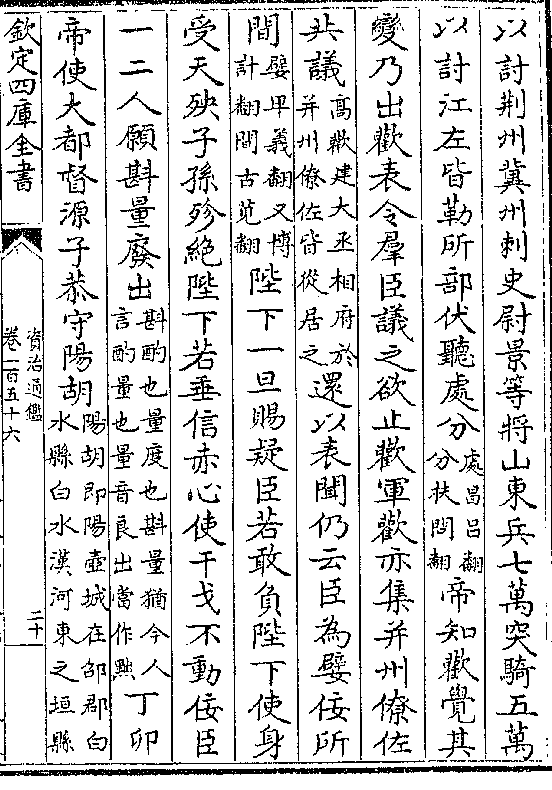 以討荆州冀州刺史尉景等將山東兵七萬突騎五萬
以討江左皆勒所部伏聽處分處昌吕翻分扶問翻帝知歡覺其
變乃出歡表令羣臣議之欲止歡軍歡亦集并州僚佐
共議高歡建大丞相府於并州僚佐皆從居之還以表聞仍云臣為嬖佞所
間嬖卑義翻又博計翻間古莧翻陛下一旦賜疑臣若敢負陛下使身
受天殃子孫殄絶陛下若垂信赤心使干戈不動佞臣
一二人願斟量廢出斟酌也量度也斟量猶今人言酌量也量音良出當作黜丁卯
帝使大都督源子恭守陽胡陽胡即陽壺城在邵郡白水縣白水漢河東之垣縣
欽定四庫全書
資治通鑑
卷一百五十六
二十